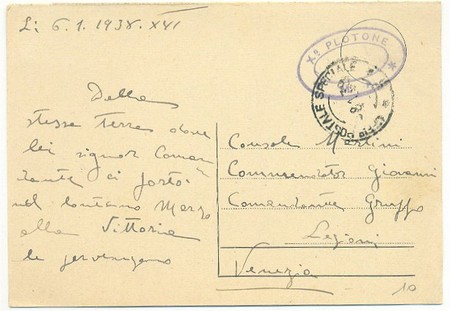 Lì 6.1.1938.XVI
Xº PLOTONE
POSTALE SPECIALE
Dalla
stessa terra dove
lei signor Coman
dante ci portò
nel lontano Marzo
alla Vittoria
le
Console Martini
Commendator Giovanni
Comandante Gruppo
Legioni
Venezia
10